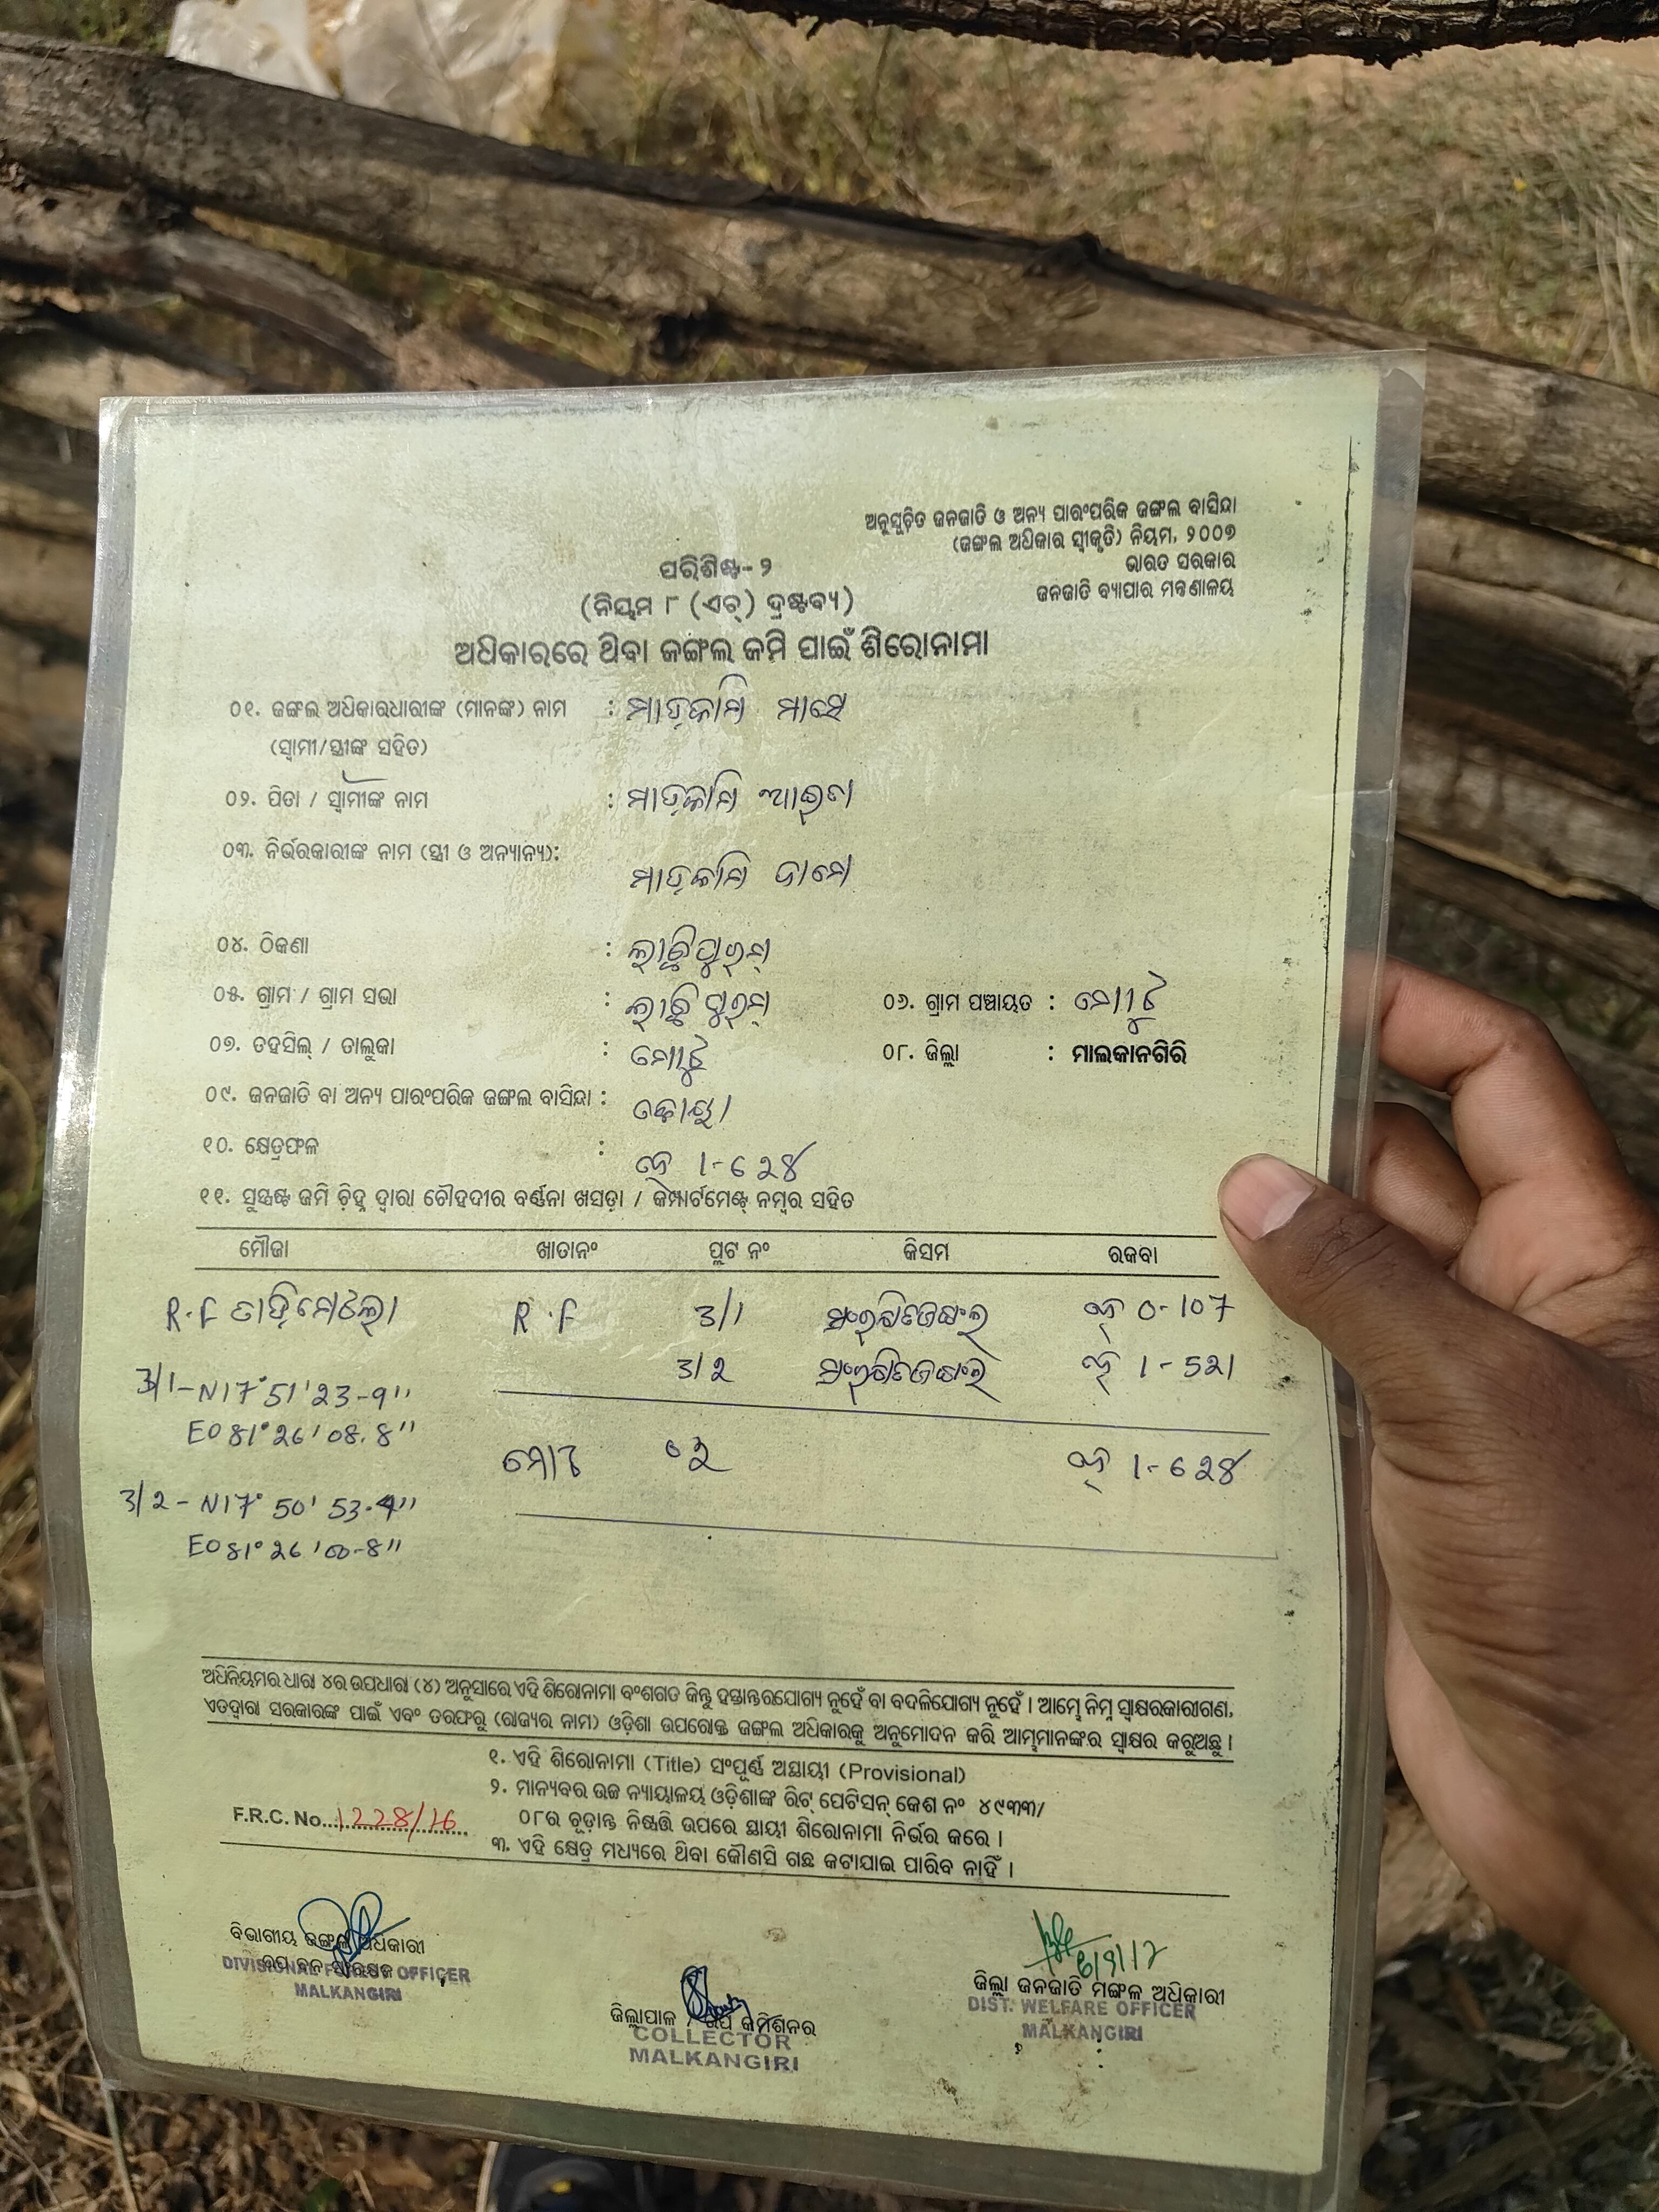 ଅନୁସୂଚିତ ଜନଜାତି ଓ ଅନ୍ୟ ପାରଂପରିକ ଜଙ୍ଗଲ ବାସିନ୍ଦା
(ଜଙ୍ଗଲ ଅଧିକାର ସ୍ୱୀକୃତି) ନିୟମ, ୨୦୦୭
ଭାରତ ସରକାର
ଜନଜାତି ବ୍ୟାପାର ମନ୍ତ୍ରଣାଳୟ
ପରିଶିଷ୍ଟ- ୨
(ନିୟମ ୮ (ଏଚ୍) ଦ୍ରଷ୍ଟବ୍ୟ)
ଅଧିକାରରେ ଥିବା ଜଙ୍ଗଲ ଜମି ପାଇଁ ଶିରୋନାମା
୦୧. ଜଙ୍ଗଲ ଅଧିକାରଧାରୀଙ୍କ (ମାନଙ୍କ) ନାମ : ମାଡ଼କାମି ମାସେ
(ସ୍ୱାମୀ/ସ୍ତ୍ରୀଙ୍କ ସହିତ)
୦୨. ପିତା / ସ୍ୱାମୀଙ୍କ ନାମ : ମାଡ଼କାମି ଆଇତା
୦୩. ନିର୍ଭରକାରୀଙ୍କ ନାମ (ସ୍ତ୍ରୀ ଓ ଅନ୍ୟାନ୍ୟ):
ମାଡ଼କାମି
୦୪. ଠିକଣା : ଲାଛିପୁରମ୍
୦୫. ଗ୍ରାମ / ଗ୍ରାମ ସଭା : ଲାଛିପୁରମ୍ ୦୬. ଗ୍ରାମ ପଞ୍ଚାୟତ : ମୋଟୁ
୦୭. ତହସିଲ୍ / ତାଲୁକା : ମୋଟୁ ୦୮. ଜିଲ୍ଲା : ମାଲକାନଗିରି
୦୯. ଜନଜାତି ବା ଅନ୍ୟ ପାରଂପରିକ ଜଙ୍ଗଲ ବାସିନ୍ଦା : କୋୟା
୧୦. କ୍ଷେତ୍ରଫଳ : ହେ 1-628
୧୧. ସୁସ୍ପଷ୍ଟ ଜମି ଚିହ୍ନ ଦ୍ୱାରା ଚୌହଦୀର ବର୍ଣ୍ଣନା ଖସଡ଼ା / କମ୍ପାର୍ଟମେଣ୍ଟ ନମ୍ବର ସହିତ
ମୌଜା ଖାତାନଂ ପ୍ଲଟ ନଂ କିସମ ରକବା
R.F R.F 3/1 ସଂରକ୍ଷିତଜଙ୍ଗଲ ହେ 0-107
3/2 ସଂରକ୍ଷିତଜଙ୍ଗଲ ହେ 1-521
3/1-N17°51'23-9"
E081°26'08.8"
ମୋଟ ୦୨ ହେ 1-628
3/2-N17°50'53-4"
E081°26'00-8"
ଅଧିନିୟମର ଧାରା ୪ର ଉପଧାରା (୪) ଅନୁସାରେ ଏହି ଶିରୋନାମା ବଂଶଗତ କିନ୍ତୁ ହସ୍ତାନ୍ତରଯୋଗ୍ୟ ନୁହେଁ ବା ବଦଳିଯୋଗ୍ୟ ନୁହେଁ । ଆମ୍ଭେ ନିମ୍ନ ସ୍ୱାକ୍ଷରକାରୀଗଣ,
ଏତଦ୍ୱାରା ସରକାରଙ୍କ ପାଇଁ ଏବଂ ତରଫରୁ (ରାଜ୍ୟର ନାମ) ଓଡ଼ିଶା ଉପରୋକ୍ତ ଜଙ୍ଗଲ ଅଧିକାରକୁ ଅନୁମୋଦନ କରି ଆମ୍ଭମାନଙ୍କର ସ୍ୱାକ୍ଷର କରୁଅଛୁ ।
୧. ଏହି ଶିରୋନାମା (Title) ସଂପୂର୍ଣ୍ଣ ଅସ୍ଥାୟୀ (Provisional)
୨. ମାନ୍ୟବର ଉଚ୍ଚ ନ୍ୟାୟାଳୟ ଓଡ଼ିଶାଙ୍କ ରିଟ୍ ପେଟିସନ୍ କେଶ ନଂ ୪୯୩୩/
୦୮ର ଚୂଡ଼ାନ୍ତ ନିଷ୍ପତ୍ତି ଉପରେ ସ୍ଥାୟୀ ଶିରୋନାମା ନିର୍ଭର କରେ ।
F.R.C. No. 1228/16
୩. ଏହି କ୍ଷେତ୍ର ମଧ୍ୟରେ ଥିବା କୌଣସି ଗଛ କଟାଯାଇ ପାରିବ ନାହିଁ ।
ବିଭାଗୀୟ ଜଙ୍ଗଲ ଅଧିକାରୀ
ଉପ ବନ ସଂରକ୍ଷକ
DIVISIONAL FOREST OFFICER
MALKANGIRI
ଜିଲ୍ଲାପାଳ / ଉପ କମିଶିନର
COLLECTOR
MALKANGIRI
6/9/17
ଜିଲ୍ଲା ଜନଜାତି ମଙ୍ଗଳ ଅଧିକାରୀ
DIST. WELFARE OFFICER
MALKANGIRI